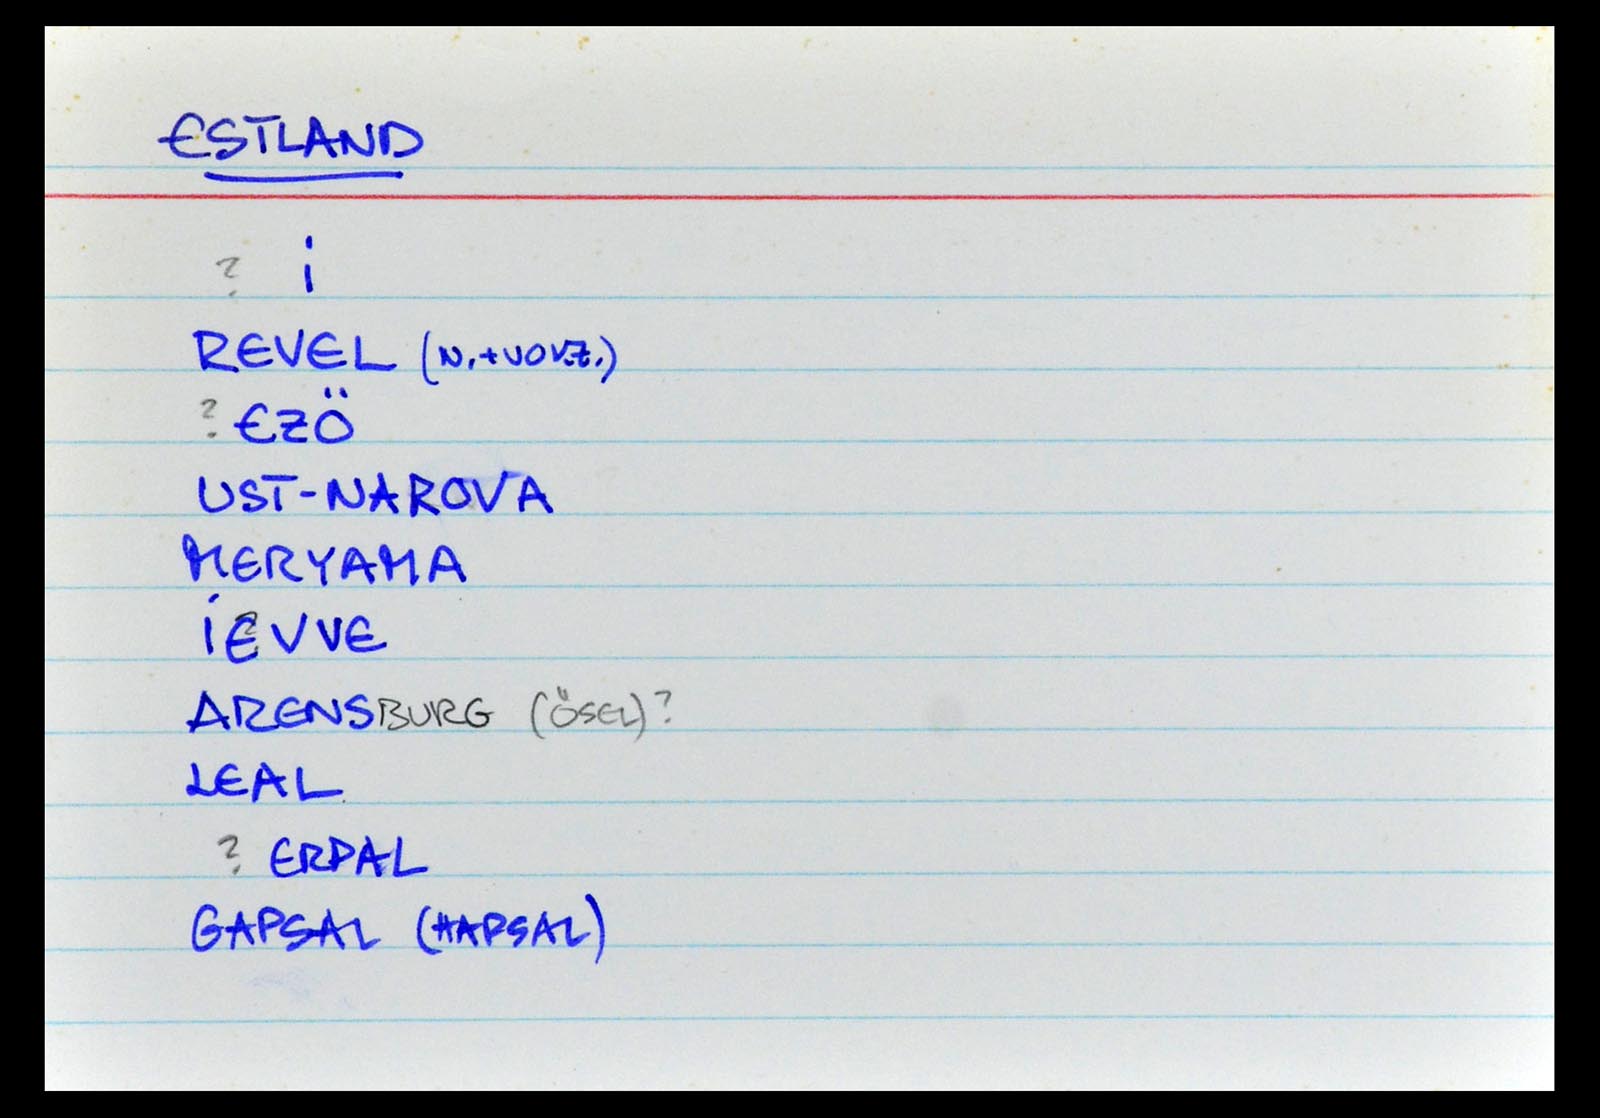 ESTLAND
? i
REVEL (N.+VOVZ.)
? EZÖ
UST-NAROVA
MERYAMA
iEVVE
ARENSBURG (ÖSEL)?
LEAL
? ERPAL
GAPSAL (HAPSAL)